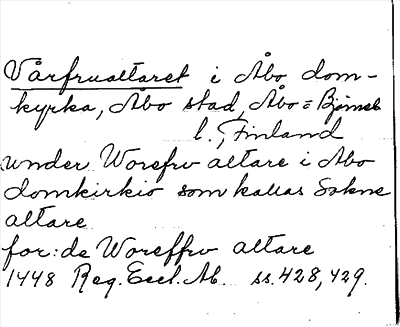 Vårfrualtaret i Åbo dom-
kyrka, Åbo stad, Åbo = Björneb
l., Finland
under Worefrv altare i Åbo
domkirkio som kallas Sokne
altare
for: de Woreffrv altare
1448 Reg. Eccl. Ab. ss. 428, 429.